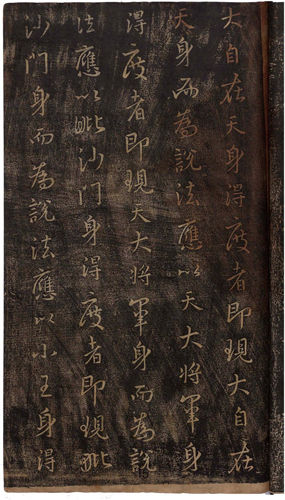 大自在天身得度者即現大自在
天身而為說法應以天大將軍身
得度者即現天大將軍身而為說
法應以毗沙門身得度者即現毗
沙門身而為說法應以小王身得